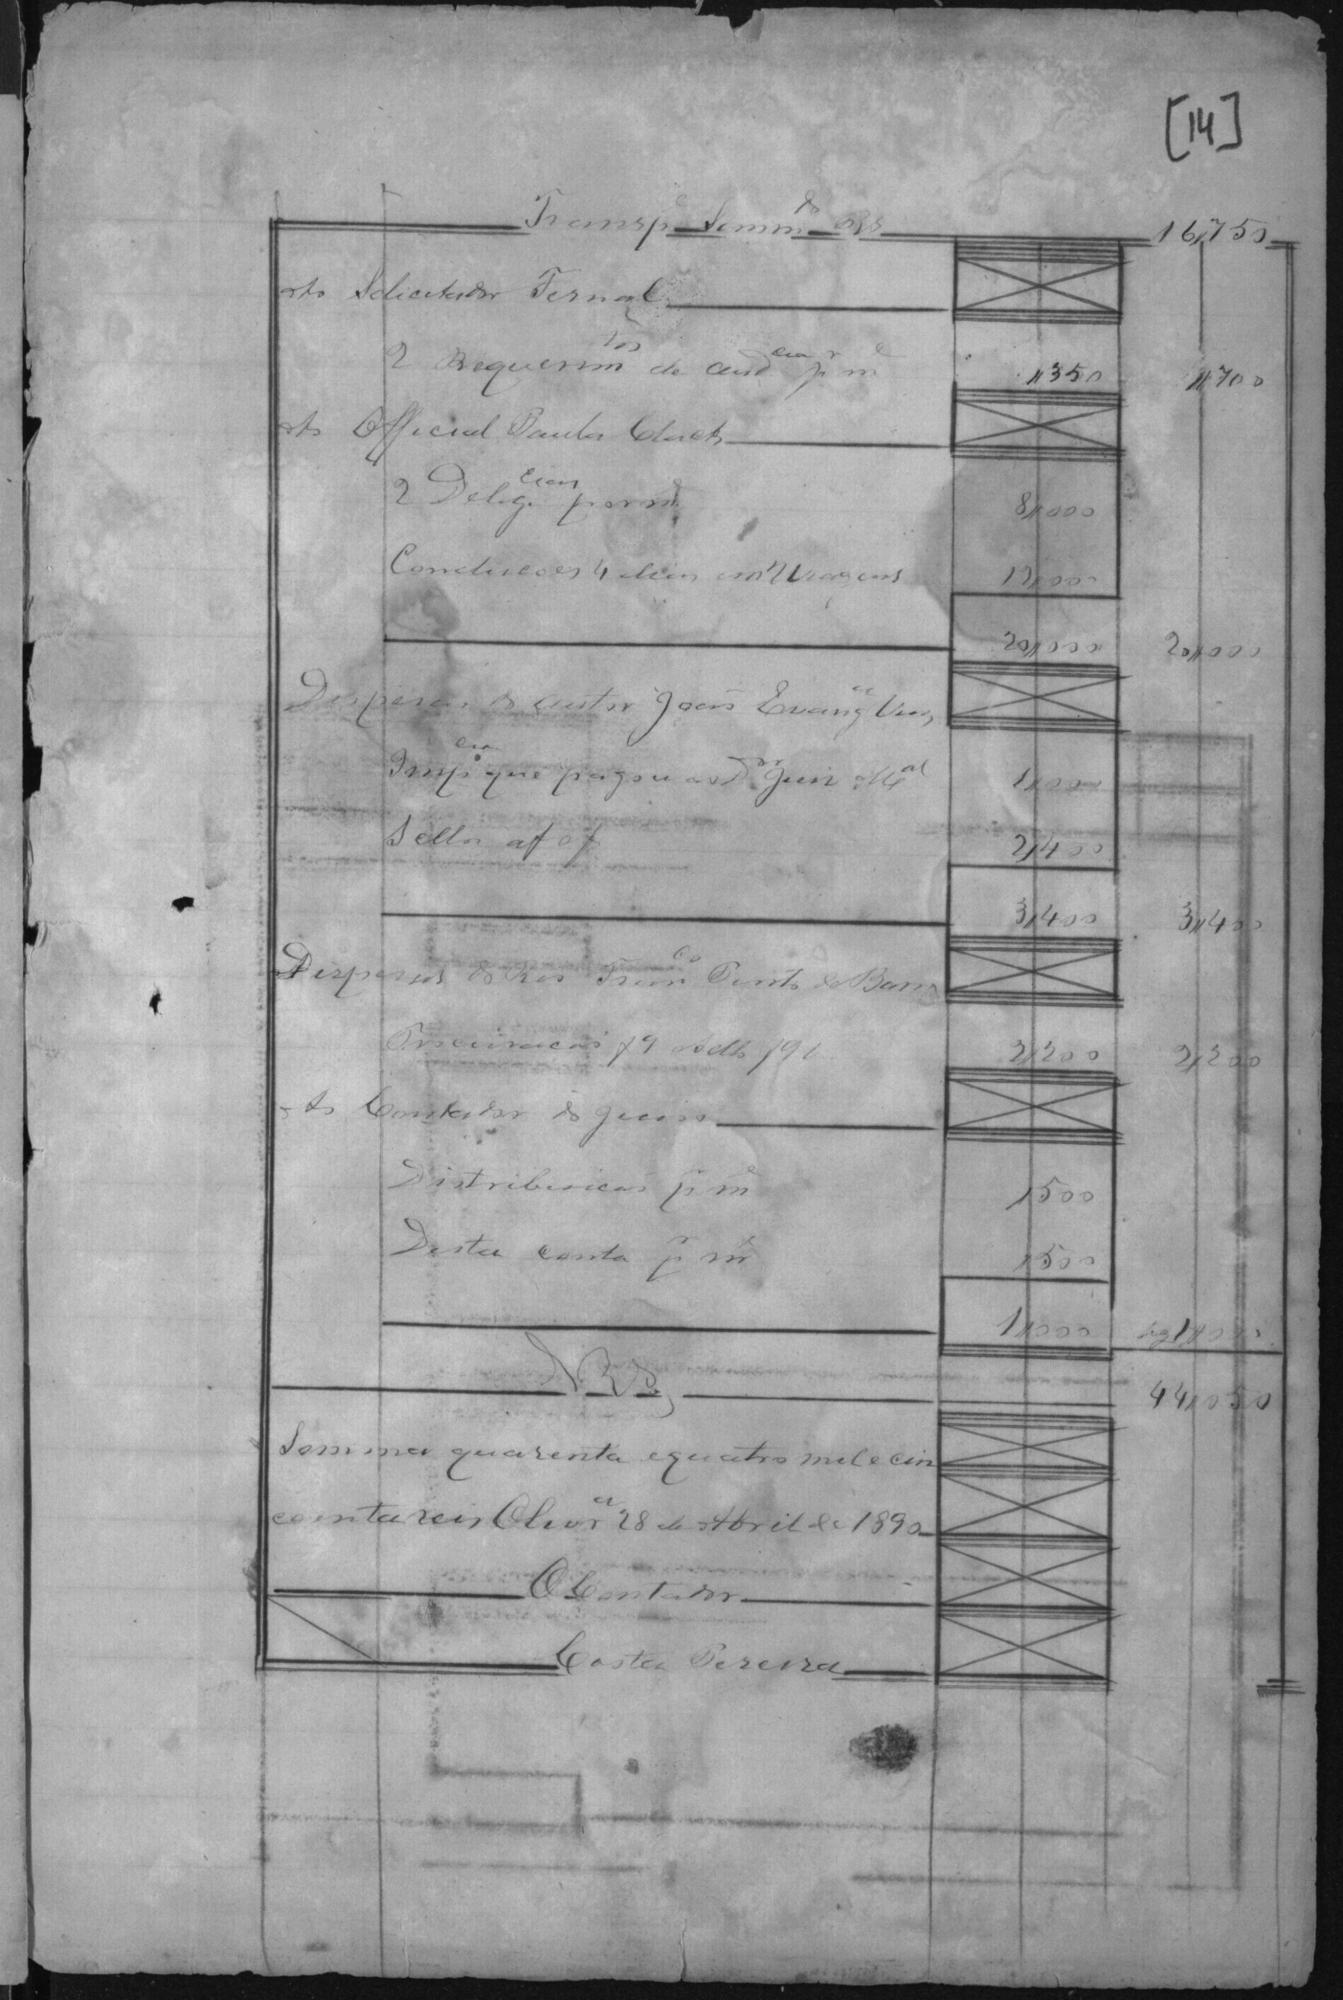 [14]
Transp.e Somm do Rs 16,750
Ao Solicitador Fernal
2 Requerim tos de aud cias p.r m e 350 700
Ao Official Paulo
2 Delig cias por m 8,000
Conducções 4 leg em 2 viagens 12,000
20,000 20,000
Despesas do autor João Evang ta
Imp cia que pagou ao Dr Juiz M al 1,000
Sellos af of 2,400
3,400 3,400
Despesas do Reo Fran co Pinto de Barros
Procuração f9 sello f91 2,200 2,200
Ao Contador do Juiso
Distribuicao p.r m e 500
Desta conta p.r m e 500
1,000 1,000
44,050
Somma quarenta e quatro mil e cin
coenta reis Oliv ra 28 de Abril de 1890
O Contador
Costa Pereira